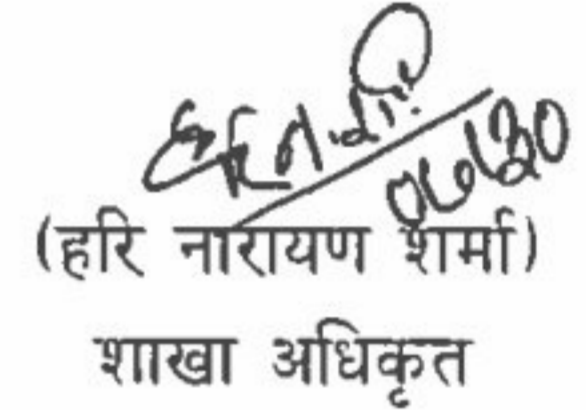 (हरि नारायण शर्मा)
शाखा अधिकृत